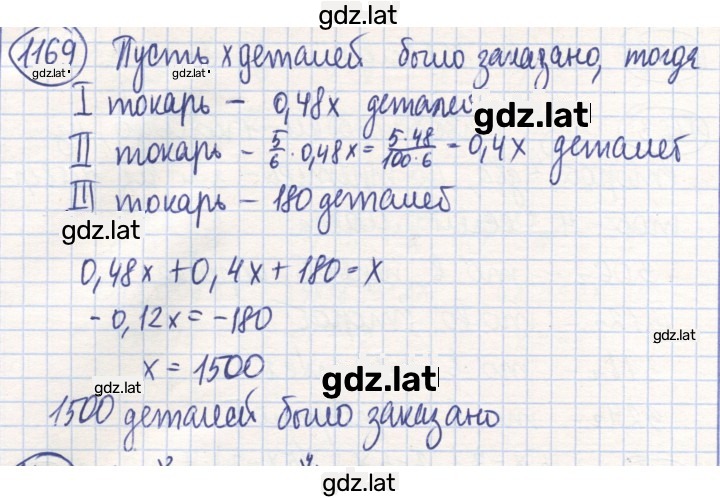 gdz.lat
1169 Пусть x деталей было заказано, тогда
gdz.lat gdz.lat
I токарь - 0,48x деталей
gdz.lat
II токарь - 5/6 · 0,48x = 5·48/100·6 = 0,4x деталей
III токарь - 180 деталей
gdz.lat
0,48x + 0,4x + 180 = x
- 0,12x = - 180
gdz.lat
x = 1500
gdz.lat gdz.lat
1500 деталей было заказано
gdz.lat